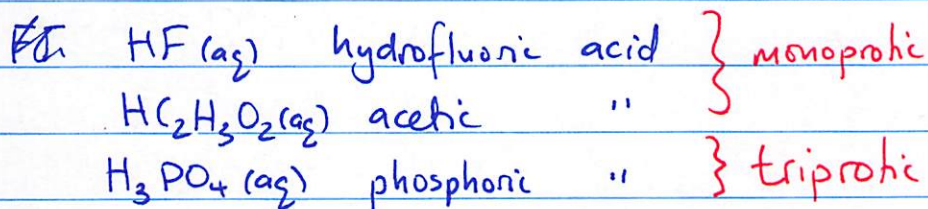 HF (aq) hydrofluoric acid } monoprotic
HC₂H₃O₂ (aq) acetic "
H₃PO₄ (aq) phosphoric " } triprotic